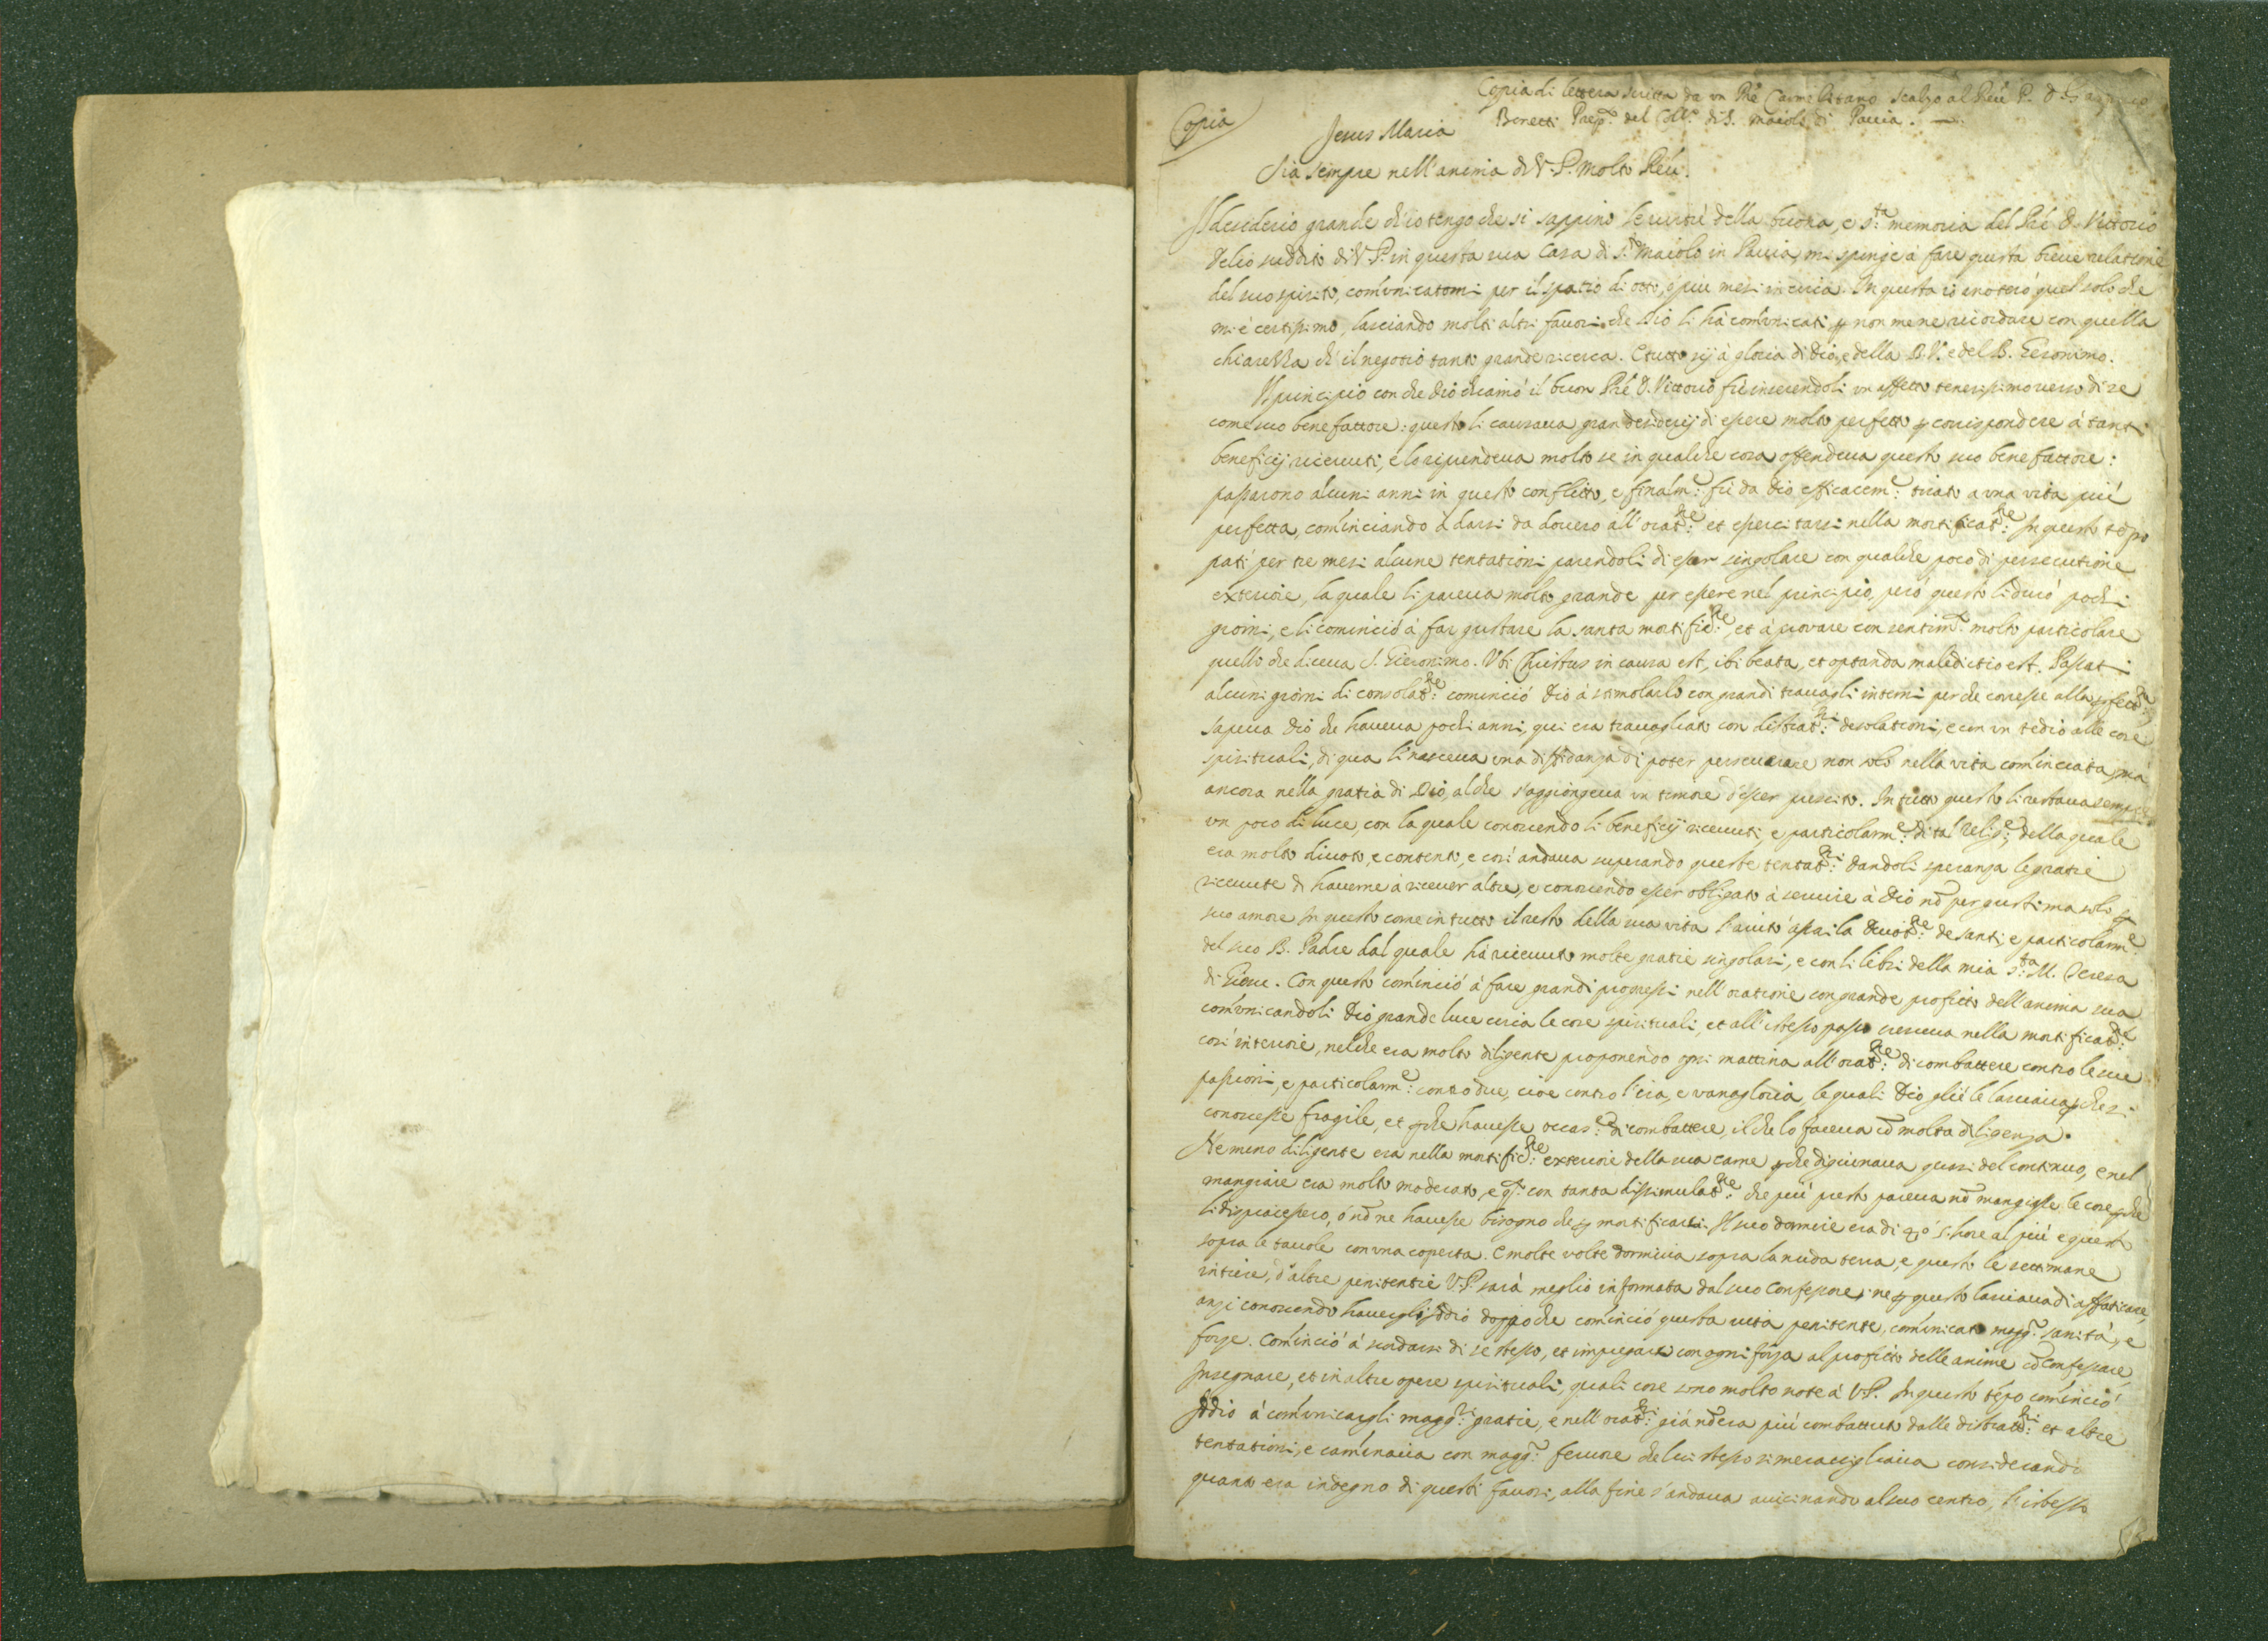 Copia di lettera scritta da un Pr̃e Carmelitano Scalzo al Reu. P. D.
Beretti Prep.to del Coll.o di S. Maiolo di Pauia.
Copia
Jesus Maria
Sia sempre nell'anima di V. P. Molto Reu.
Il desiderio grande ch'io tengo che si sappino le uirtù della buona, e s.ta memoria del Pr̃e D. Vittorio
Delio suddito di V. P. in questa sua Casa di S.to Maiolo in Pauia, mi spinge à fare questa breue relatione
del suo spirito, comunicatomi per il spatio di otto, ò piu mesi in circa. In questa io noterò quel solo che
mi è certissimo, lasciando molti altri fauori che Dio li hà comunicati p non mene ricordare con quella
chiarezza ch' il negotio tanto grande ricerca. E tutto sij à gloria di Dio, e della B. V. e del B. Geronimo.
Il principio con che Dio chiamò il buon Pr̃e D. Vittorio fù inserendoli un affetto tenerissimo uerso di se
come suo benefattore: questo li causaua gran desiderij di essere molto perfetto p corrispondere à tanti
beneficij riceuuti, e lo riprendeua molto se in qualche cosa offendeua questo suo benefattore:
passarono alcuni anni in questo conflitto, e finalm.e fù da Dio efficacem.e tirato a una vita più
perfetta, cominciando à darsi da douero all'orat.ne et essercitarsi nella mortificat.ne In questo tẽpo
patì per tre mesi alcune tentationi parendoli di esser singolare con qualche poco di persecutione
exteriore, la quale li pareua molto grande per essere nel principio, però questo li durò pochi
giorni, e li cominciò à far gustare la santa mortific.ne et à prouare con sentim.to molto particolare
quello che diceua S. Gieronimo. Vbi Christus in causa est, ibi beata, et optanda maledictio est. Passati
alcuni giorni di consolat.ne cominciò Dio à stimolarlo con grandi trauagli interni perche corresse alla pfett.ne
sapeua Dio che haueua pochi anni, qui era trauagliato con distrat.ni desolationi, e con un tedio alle cose
spirituali, di qua li nasceua una diffidanza di poter perseuerare non solo nella vita cominciata, mà
ancora nella gratia di Dio, al che s'aggiongeua un timore d'esser prescito. In tutto questo li restaua sempre
un poco di luce, con la quale conoscendo li beneficij riceuuti, e particolarm.e di tal Relig.e della quale
era molto diuoto, e contento, e così andaua superando queste tentat.ni dandoli speranza le gratie
riceuute di hauerne à riceuer altre, e conoscendo esser obligato à seruire à Dio nõ per gusti ma solo p
suo amore In questo come in tutto il resto della sua vita l'aiutò assai la Deuot.ne de santi, e particolarm.e
del suo B. Padre dal quale hà riceuuto molte gratie singolari, e con li libri della mia s.ta M. Teresa
di Giesu. Con questo cominciò à fare grandi progressi nell'oratione con grande profitto dell'anima sua
comunicandoli Dio grande luce circa le cose spirituali, et all'istesso passo cresceua nella mortificat.ne
così interiore, nelche era molto diligente proponendo ogni mattina all'orat.ne di combattere contro le sue
passioni, e particolarm.e contro due, cioe contro l'ira, e vanagloria, le quali Dio gliè le lasciaua p che si
conoscesse fragile, et p che hauesse occas.e di combattere, il che lo faceua cõ molta diligenza.
Ne meno diligente era nella mortific.ne exteriore della sua carne p che digiunaua quasi del continuo, e nel
mangiare era molto moderato, e q.to con tanta dissimulat.ne che più presto pareua nõ mangiasse le cose p che
li dispiacessero, ò nõ ne hauesse bisogno che p mortificarsi. Il suo dormire era di 4, ò 5. hore al più e questo
sopra le tauole con una coperta. E molte volte dormiua sopra la nuda terra, e questo le settimane
intiere, d'altre penitentie V. P. sarà meglio informata dal suo Confessore; ne p questo lasciaua di affaticare,
anzi conoscendo hauergli Iddio doppo che cominciò questa uita penitente, comunicato magg.r sanità, e
forze. Cominciò à scordarsi di se stesso, et impiegarsi con ogni forza al profitto delle anime cõ confessare,
Insegnare, et in altre opere spirituali, quali cose sono molto note à V. P. In questo tẽpo cominciò
Iddio à comunicargli magg.ri gratie, e nell'orat.ni già nõ era più combattuto dalle distratt.ni et altre
tentationi, e caminaua con magg.r feruore che lui stesso si merauigliaua considerando
quanto era indegno di questi fauori, alla fine s'andaua auicinando al suo centro, l'istesso